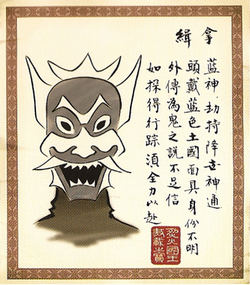 拿緝
藍神劫持降世神通
頭戴藍色土國面具身份不明
外傳為鬼之說不足信
如探得行踪須全力以赴